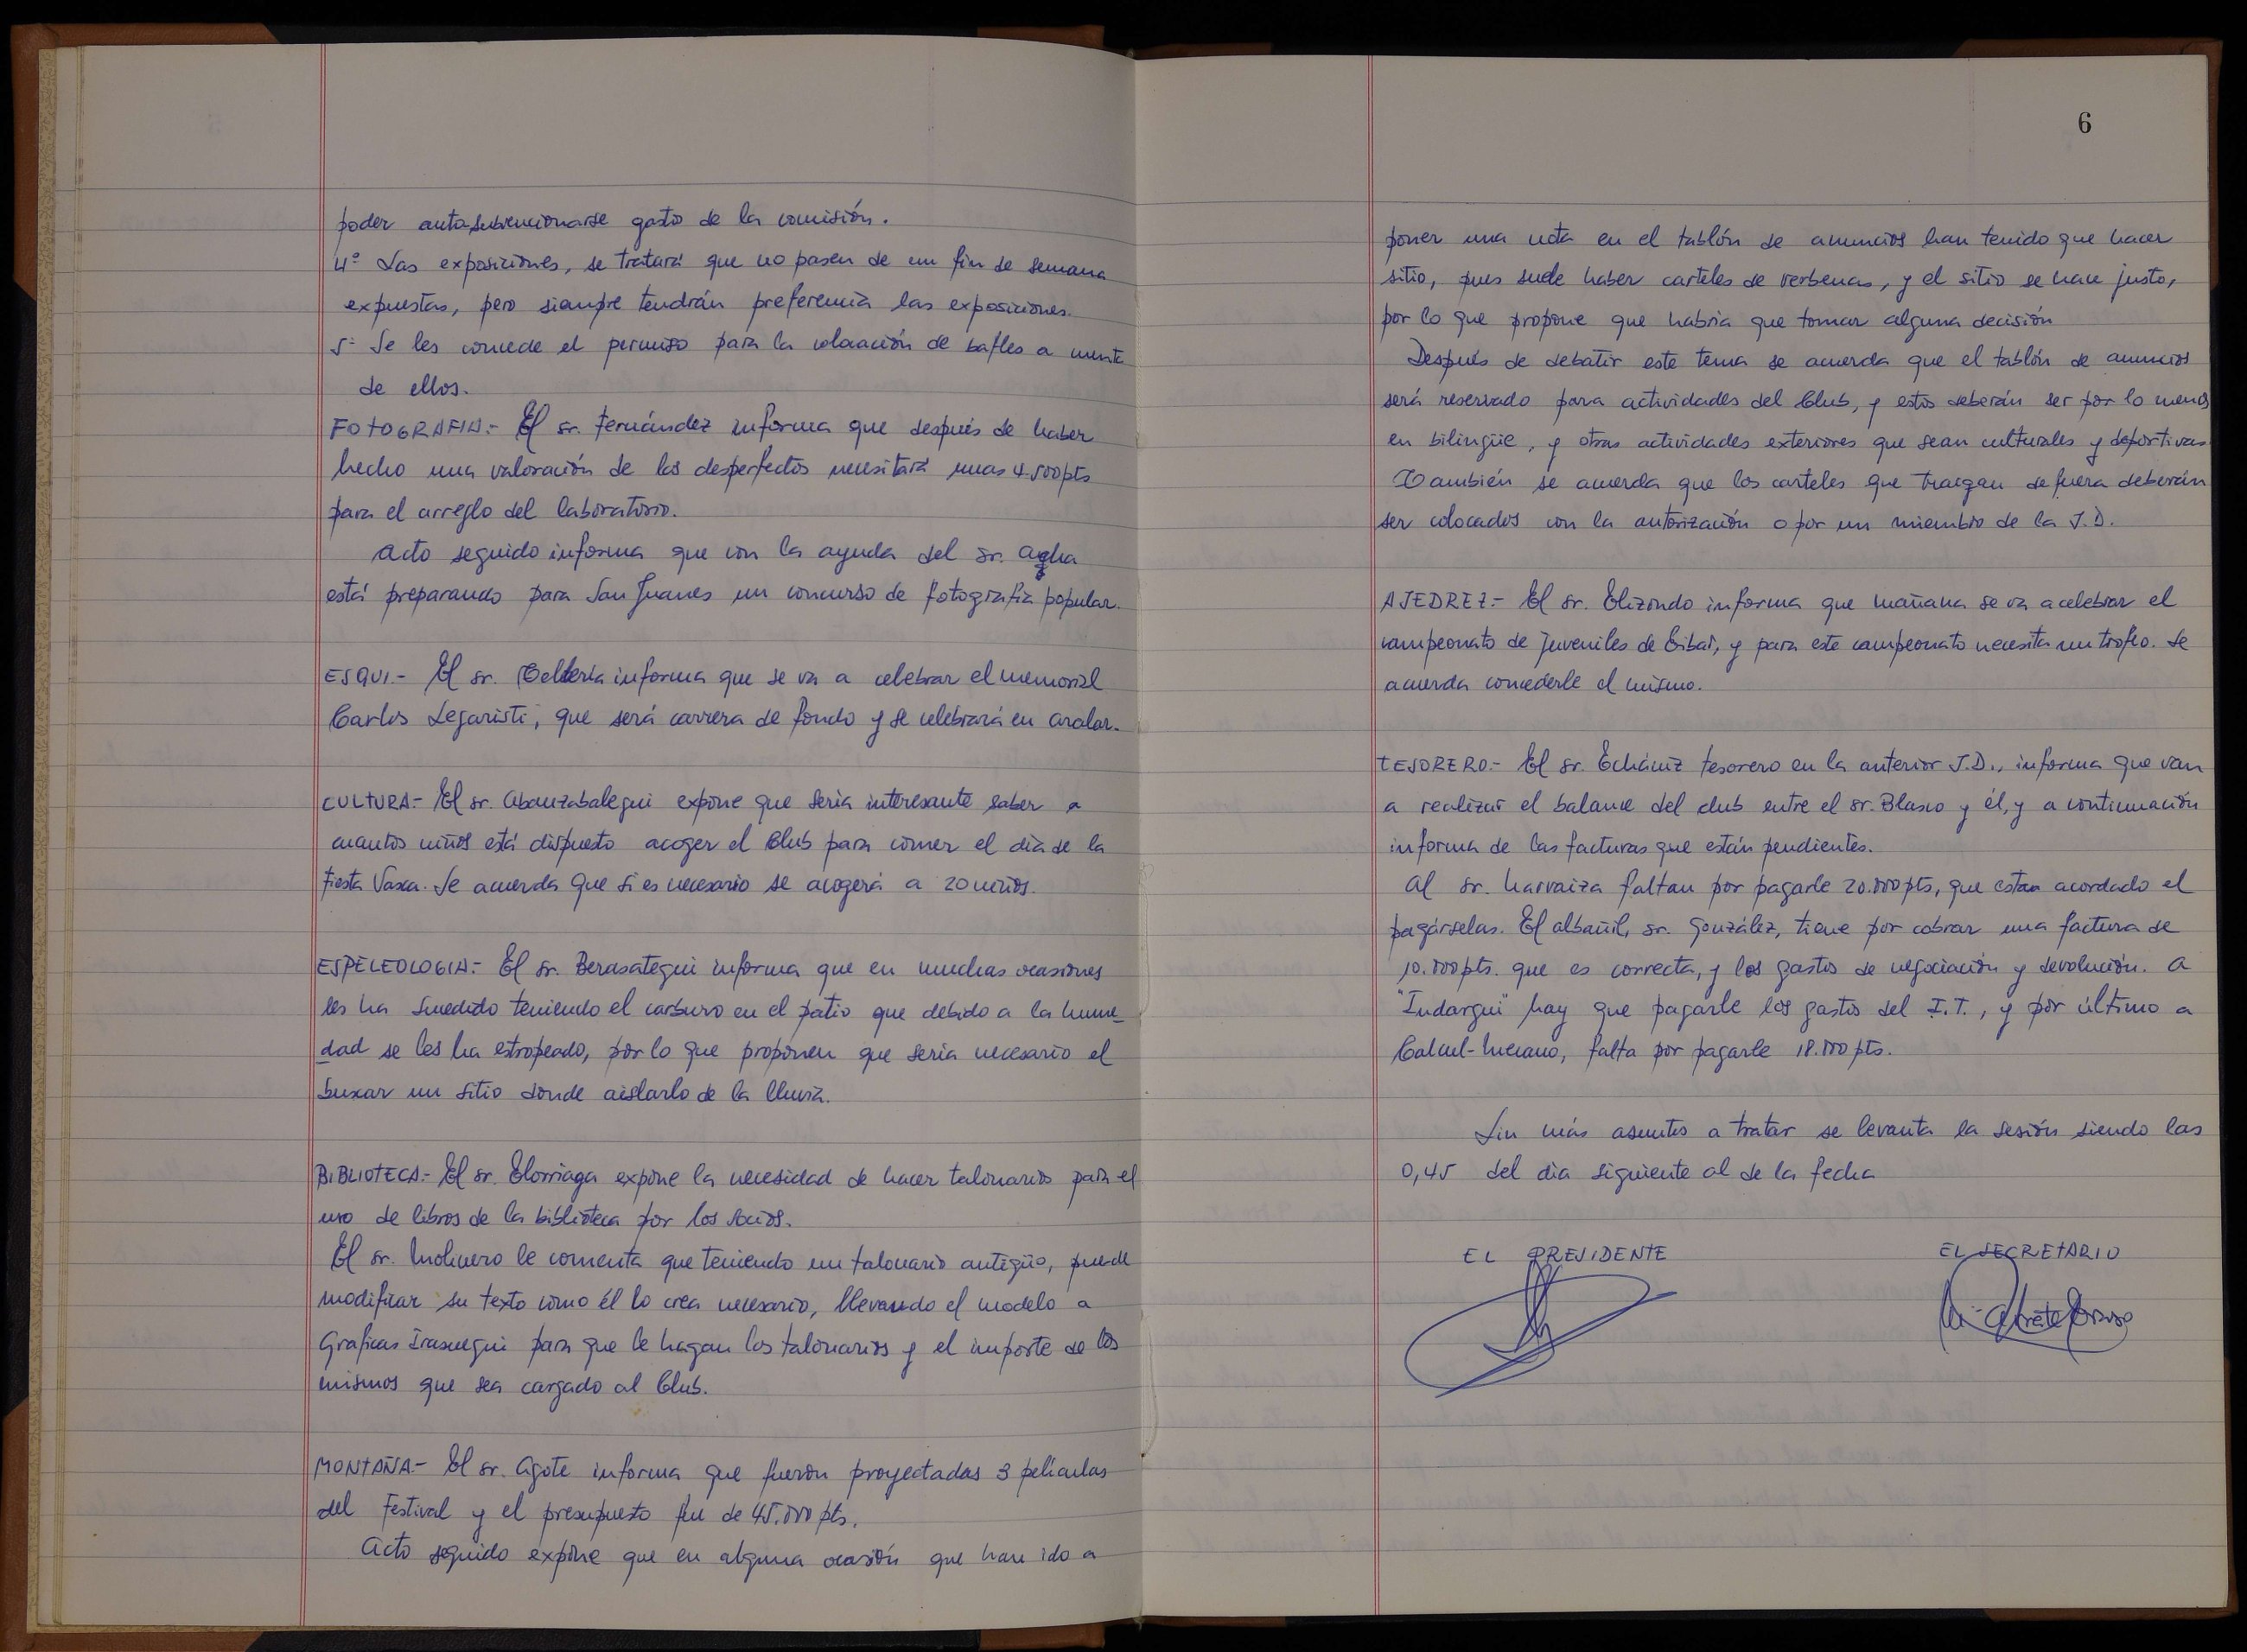 poder autosubvencionarse gasto de la comisión.
4º Las exposiciones, se tratará que no pasen de un fin de semana
expuestas, pero siempre tendrán preferencia las exposiciones.
5º Se les concede el permiso para la colocación de bafles a cuenta
de ellos.
FOTOGRAFIA.- El sr. Fernández informa que después de haber
hecho una valoración de los desperfectos necesitará unas 4.500 pts
para el arreglo del laboratorio.
Acto seguido informa que con la ayuda del sr.
está preparando para San Juanes un concurso de fotografía popular.
ESQUI.- El sr. informa que se va a celebrar el memorial
Carlos Legaristi, que será carrera de fondo y se celebrará en Aralar.
CULTURA.- El sr. Abanzabalegui expone que sería interesante saber a
cuantos niños está dispuesto acoger el Club para comer el día de la
Fiesta Vasca. Se acuerda que si es necesario se acogerá a 20 niños.
ESPELEOLOGIA.- El sr. Berasategui informa que en muchas ocasiones
les ha sucedido teniendo el carburo en el patio que debido a la hume-
dad se les ha estropeado, por lo que proponen que sería necesario el
buscar un sitio donde aislarlo de la lluvia.
BIBLIOTECA.- El sr. Elorriaga expone la necesidad de hacer talonarios para el
uso de libros de la biblioteca por los socios.
El sr. Molinero le comenta que teniendo un talonario antigüo, puede
modificar su texto como él lo crea necesario, llevando el modelo a
Graficas Irasuegui para que le hagan los talonarios y el importe de los
mismos que sea cargado al Club.
MONTAÑA.- El sr. Agote informa que fueron proyectadas 3 películas
del Festival y el presupuesto fue de 45.000 pts.
Acto seguido expone que en alguna ocasión que han ido a
6
poner una nota en el tablón de anuncios han tenido que hacer
sitio, pues suele haber carteles de verbenas, y el sitio se hace justo,
por lo que propone que habría que tomar alguna decisión
Después de debatir este tema se acuerda que el tablón de anuncios
será reservado para actividades del Club, y estos deberán ser por lo menos
en bilingüe, y otras actividades exteriores que sean culturales y deportivas.
También se acuerda que los carteles que traigan de fuera deberán
ser colocados con la autorización o por un miembro de la J.D.
AJEDREZ.- El sr. Elizondo informa que mañana se va a celebrar el
campeonato de juveniles de Eibar, y para este campeonato necesita un trofeo. Se
acuerda concederle el mismo.
TESORERO.- El sr. Echániz tesorero en la anterior J.D., informa que van
a realizar el balance del club entre el sr. Blasco y él, y a continuación
informa de las facturas que están pendientes.
Al sr. Narvaiza faltan por pagarle 20.000 pts, que estaa acordado el
pagárselas. El albañil, sr. González, tiene por cobrar una factura de
10.000 pts. que es correcta, y los gastos de negociación y devolución. A
"Indargui" hay que pagarle los gastos del I.T., y por último a
falta por pagarle 18.000 pts.
Sin más asuntos a tratar se levanta la sesión siendo las
0,45 del día siguiente al de la fecha
EL PRESIDENTE
EL SECRETARIO